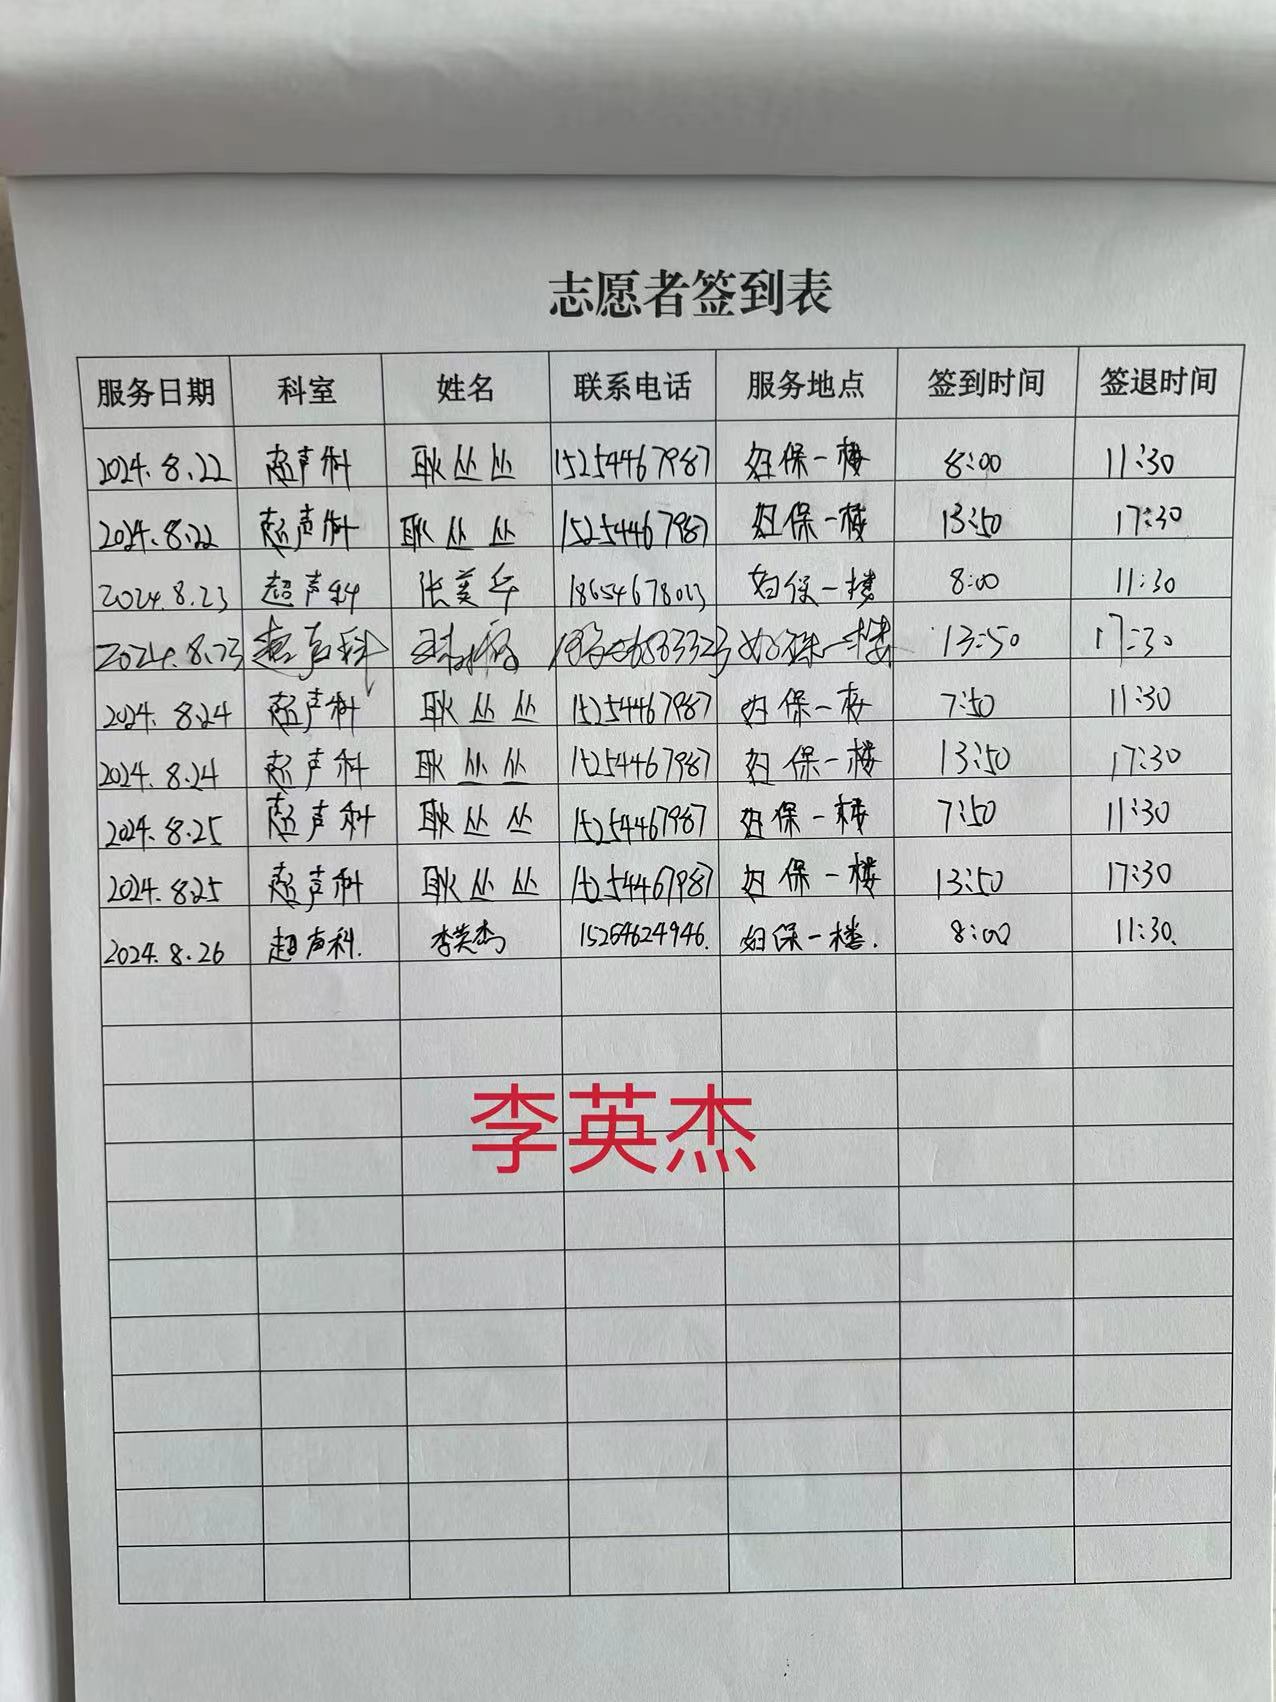 志愿者签到表
服务日期 科室 姓名 联系电话 服务地点 签到时间 签退时间
2024.8.22 超声科 耿丛丛 15254467987 妇保一楼 8:00 11:30
2024.8.22 超声科 耿丛丛 15254467987 妇保一楼 13:50 17:30
2024.8.23 超声科 张美华 18654678023 妇保一楼 8:00 11:30
2024.8.23 超声科 妇保一楼 13:50 17:30
2024.8.24 超声科 耿丛丛 15254467987 妇保一楼 7:50 11:30
2024.8.24 超声科 耿丛丛 15254467987 妇保一楼 13:50 17:30
2024.8.25 超声科 耿丛丛 15254467987 妇保一楼 7:50 11:30
2024.8.25 超声科 耿丛丛 15254467987 妇保一楼 13:50 17:30
2024.8.26 超声科. 李英杰 15264624946. 妇保一楼. 8:00 11:30.
李英杰